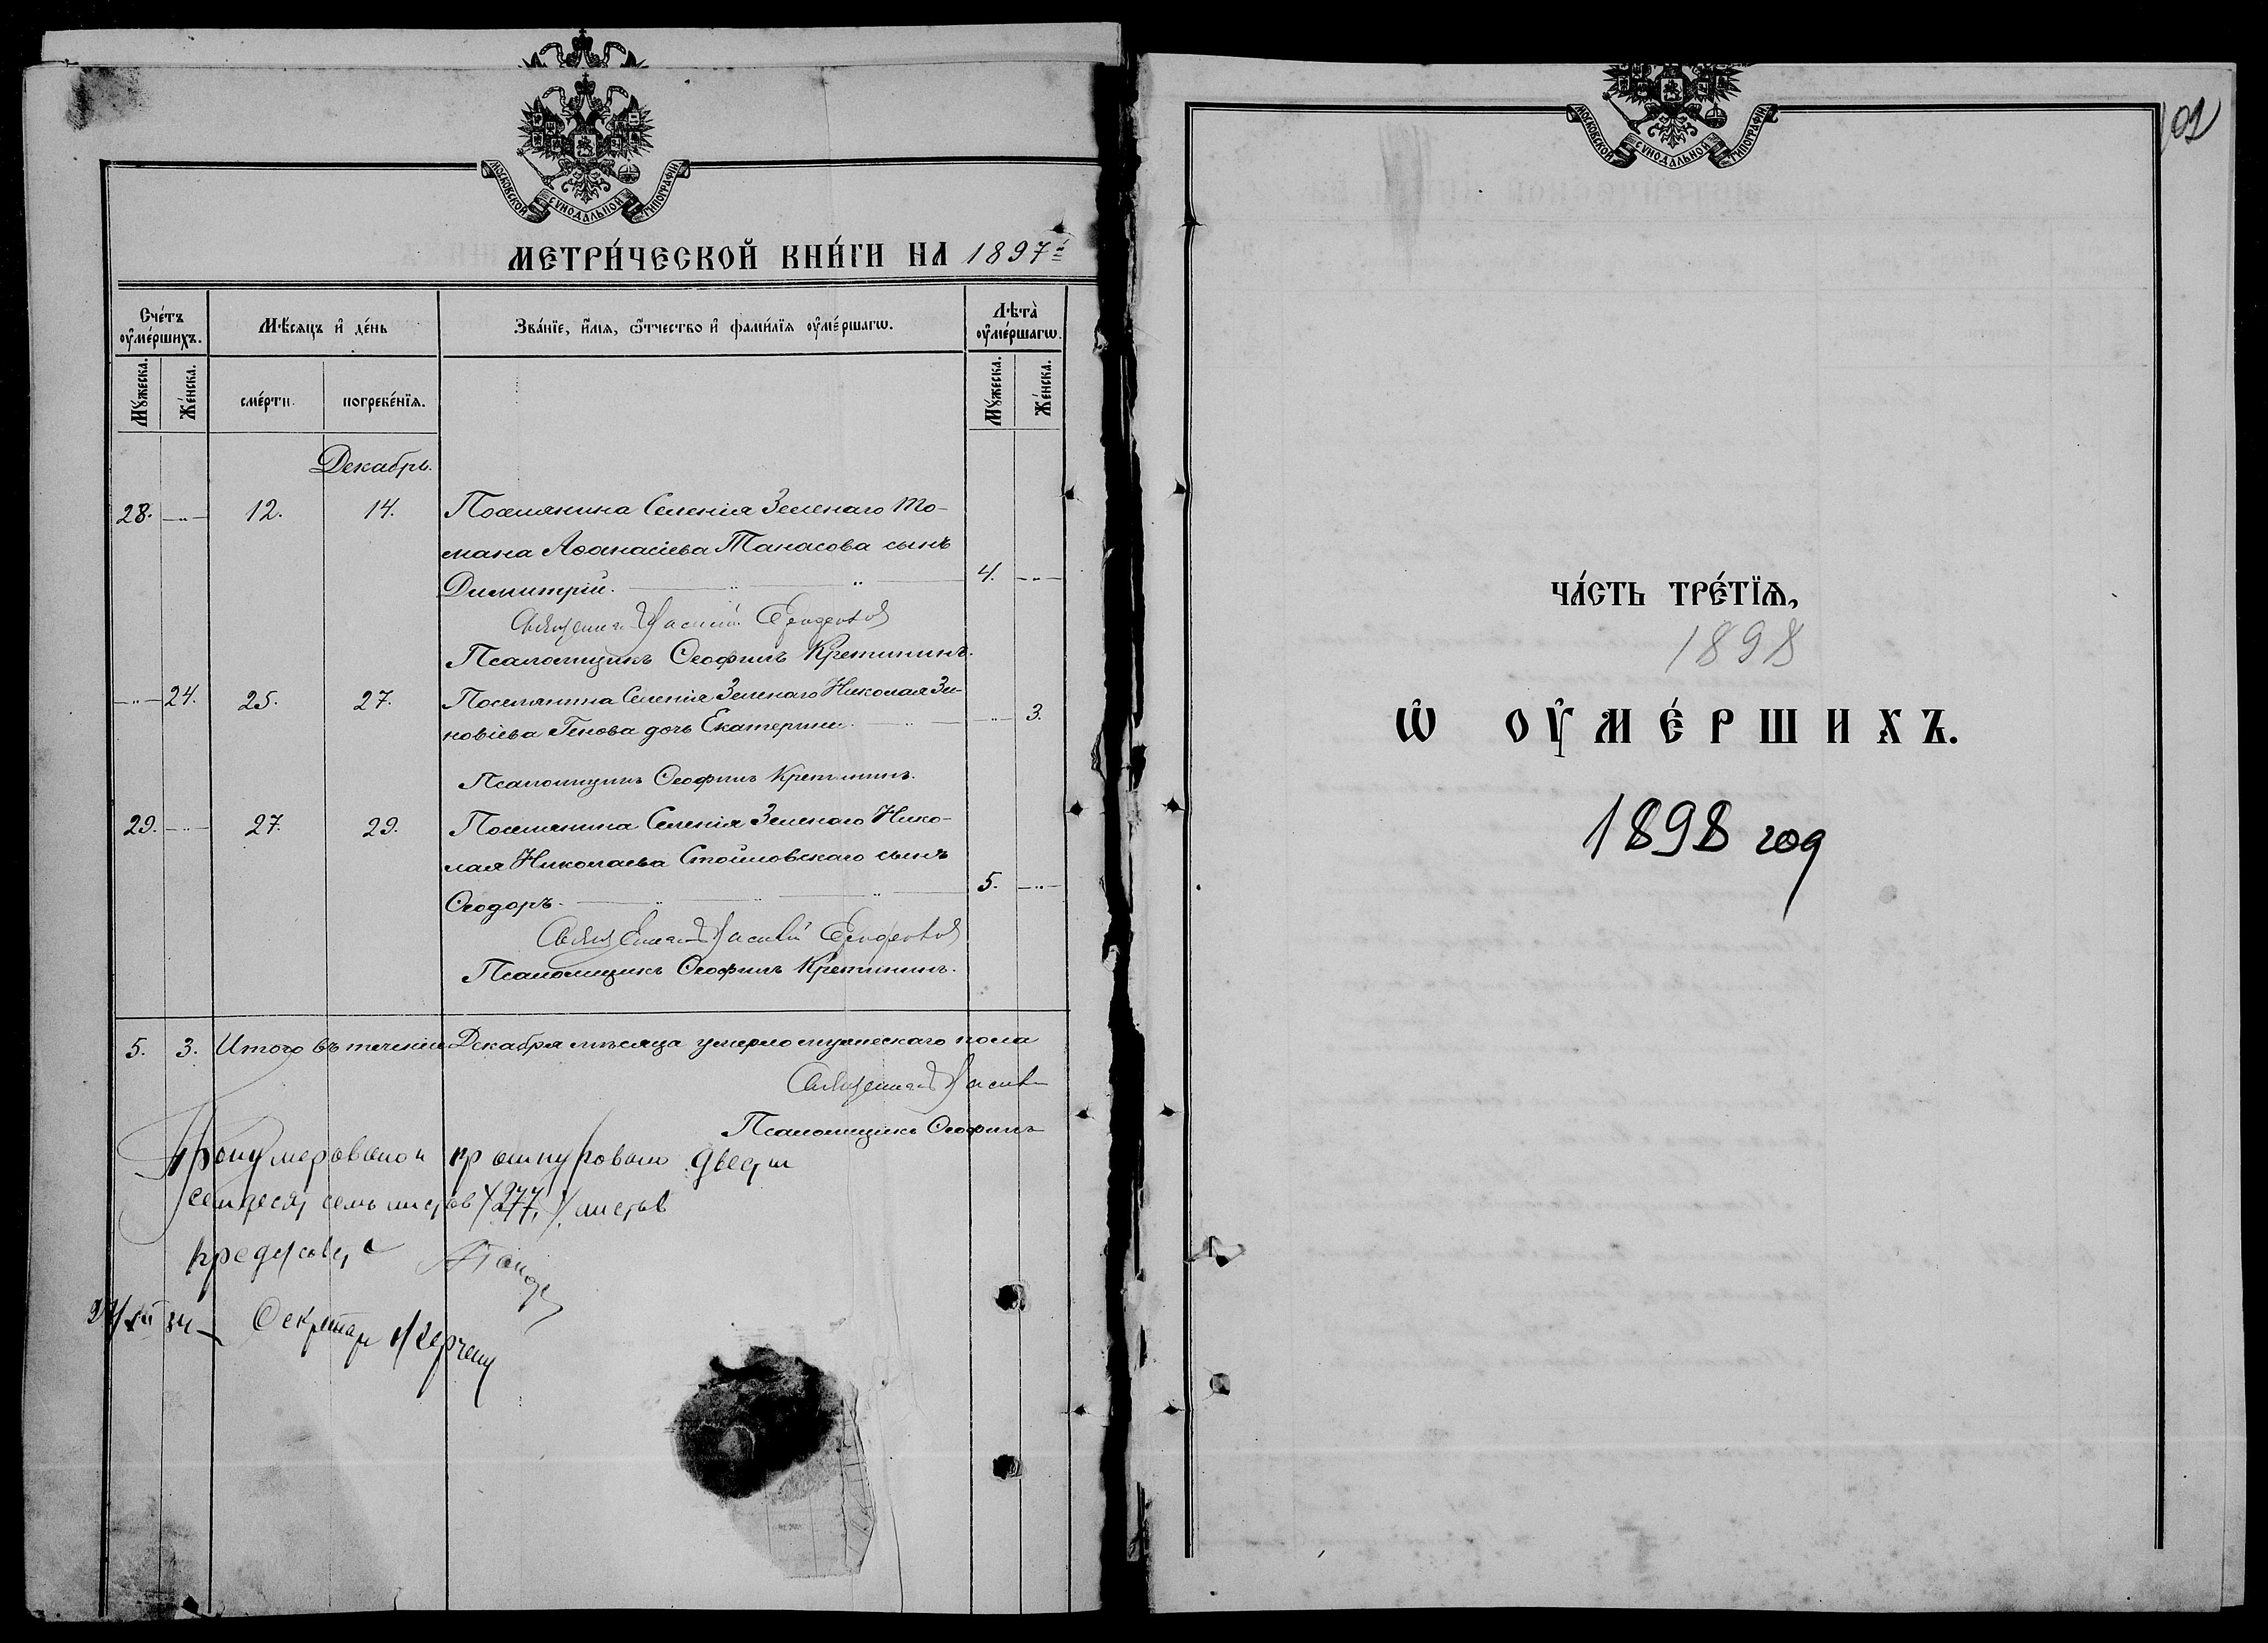 МОСКОВСКОЙ СѴНОДАЛЬНОЙ ТИПОГРАФІИ.
МЕТРИ́ЧЕСКОЙ КНИ́ГИ НА 1897 г.
Сче́тъ оу҆ме́ршихъ.
Мѣ́сяцъ и҆ де́нь
Зва́нїе, и҆́мѧ, ѻ҆́тчество и҆ фами́лїѧ оу҆ме́ршагѡ.
Лѣта̀ оу҆ме́ршагѡ.
Мꙋ́жеска.
Же́нска.
сме́рти.
погребе́нїѧ.
Мꙋ́жеска.
Же́нска.
Декабрь.
28. 12. 14. Поселянина Селенія Зеленаго То-
мана Аѳанасіева Танасова сынъ
Димитрій. 4.
Священникъ
Псаломщикъ Ѳеофилъ Кретининъ.
24. 25. 27. Поселянина Селенія Зеленаго Николая Зи-
новіева Генова дочь Екатерина. 3.
Псаломщикъ Ѳеофилъ Кретининъ.
29. 27. 29. Поселянина Селенія Зеленаго Нико-
лая Николаева Стоиловскаго сынъ
Ѳеодоръ. 5.
Священникъ
Псаломщикъ Ѳеофилъ Кретининъ.
5. 3. Итого въ теченіи Декабря мѣсяца умерло мужескаго пола
Священникъ
Псаломщикъ Ѳеофилъ
Пронумеровано и прошнуровано двести
семдесят семь листов /277/ листов
Секретарь
МОСКОВСКОЙ СѴНОДАЛЬНОЙ ТИПОГРАФІИ.
ЧА́СТЬ ТРЕ́ТЇѦ,
1898
Ѡ҆ ОУ҆МЕ́РШИХЪ.
1898 год